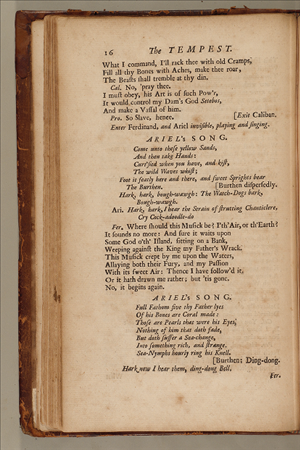 16 The TEMPEST.
What I command, I'll rack thee with old Cramps,
Fill all thy Bones with Aches, make thee roar,
The Beasts shall tremble at thy din.
Cal. No, 'pray thee.
I must obey, his Art is of such Pow'r,
It would control my Dam's God Setebos,
And make a Vassal of him.
Pro. So Slave, hence. [Exit Caliban.
Enter Ferdinand, and Ariel invisible, playing and singing.
ARIEL's SONG.
Come unto these yellow Sands,
And then take Hands:
Curt'sied when you have, and kist,
The wild Waves whist;
Foot it featly here and there, and sweet Sprights bear
The Burthen. [Burthen dispersedly.
Hark, hark, bough-waugh: The Watch-Dogs bark,
Bough-waugh.
Ari. Hark, hark, I hear the Strain of strutting Chanticlere,
Cry Cock-adoodle-do
Fer. Where should this Musick be? I'th'Air, or th'Earth?
It sounds no more: And sure it waits upon
Some God o'th' Island, sitting on a Bank,
Weeping against the King my Father's Wrack.
This Musick crept by me upon the Waters,
Allaying both their Fury, and my Passion
With its sweet Air: Thence I have follow'd it,
Or it hath drawn me rather; but 'tis gone.
No, it begins again.
ARIEL's SONG.
Full Fathom five thy Father lyes
Of his Bones are Coral made:
Those are Pearls that were his Eyes,
Nothing of him that doth fade,
But doth suffer a Sea-change,
Into something rich, and strange.
Sea-Nymphs hourly ring his Knell.
[Burthen: Ding-dong.
Hark now I hear them, ding-dong Bell.
Fer.